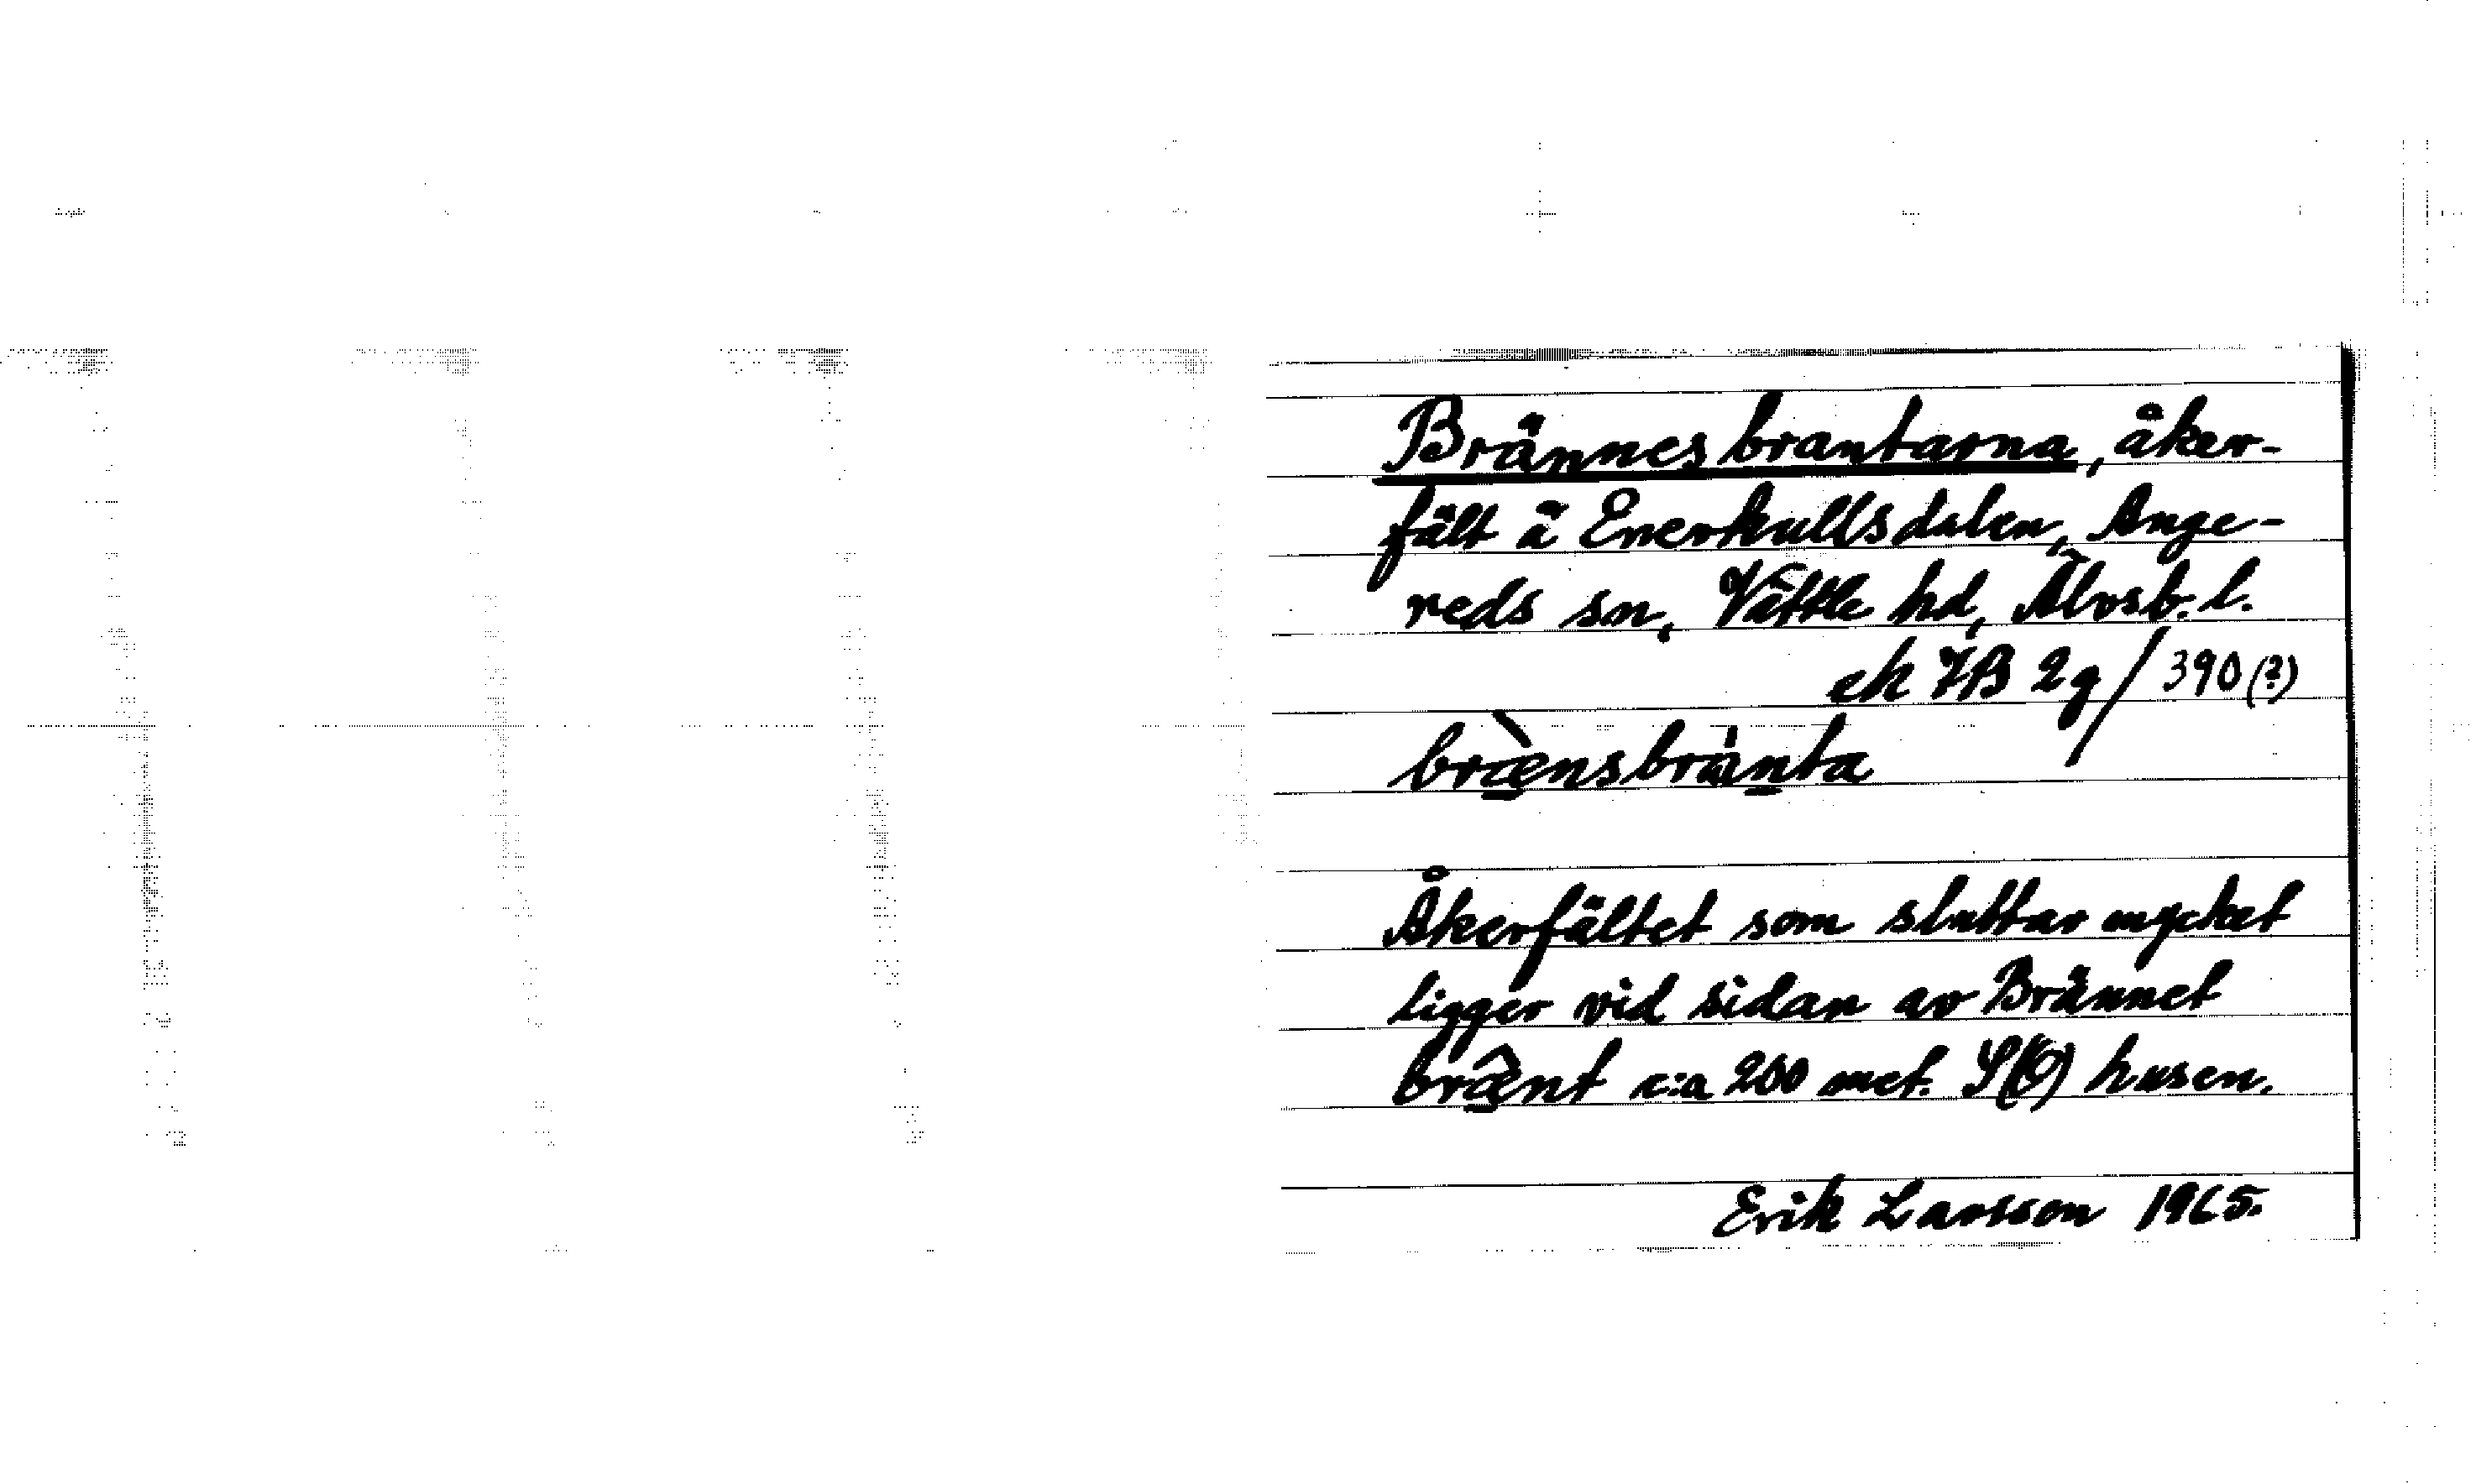 Brännesbrantarna, åker-
fält å Enerkullsdalen, Ange-
reds sn, Vättle hd, Älvsb. l.
ek 7B 2g/390(?)
bræ̀nsbrànta
Åkerfältet som sluttar mycket
ligger vid sidan av Brännet
bræ̂nt c:a 200 met. S(O) husen.
Erik Larsson 1965.